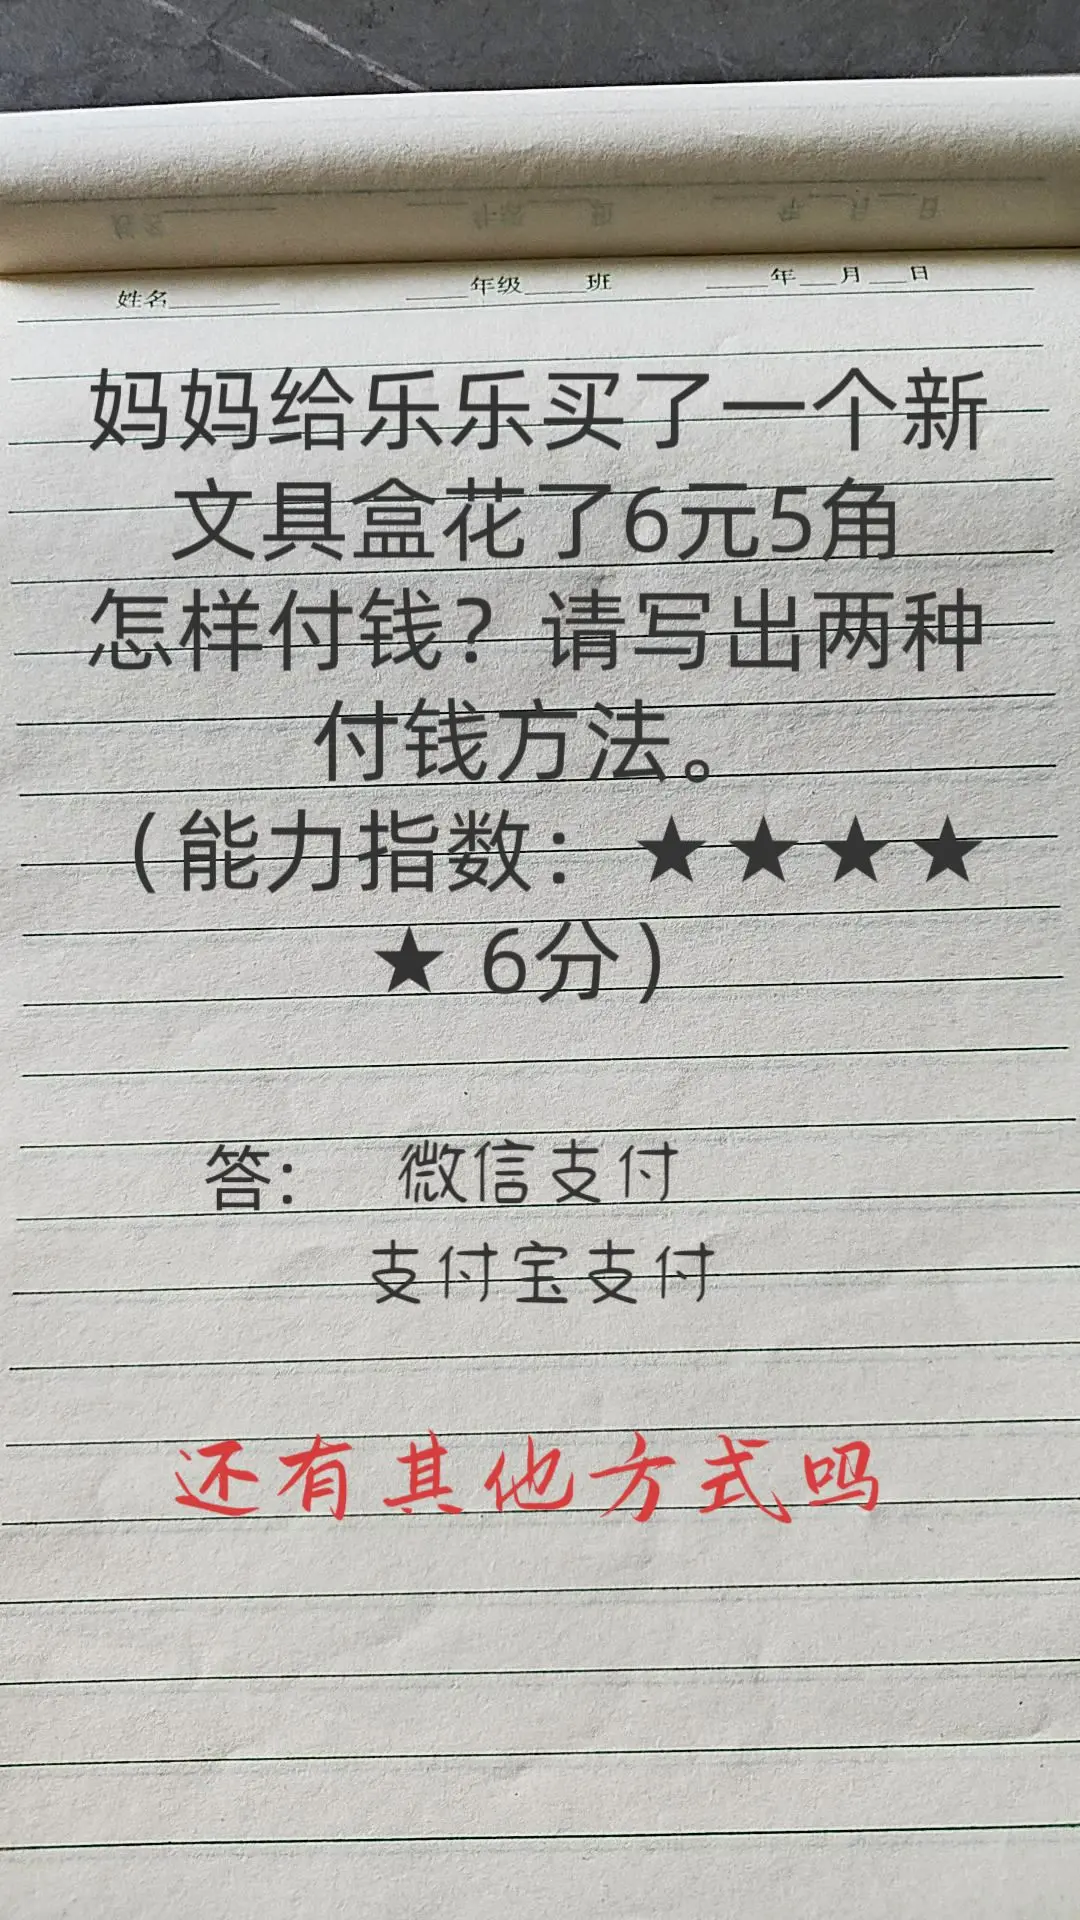 姓名____ ____年级____班 ____年___月___日
妈妈给乐乐买了一个新
文具盒花了6元5角
怎样付钱？请写出两种
付钱方法。
（能力指数：★★★★
★ 6分）
答： 微信支付
支付宝支付
还有其他方式吗